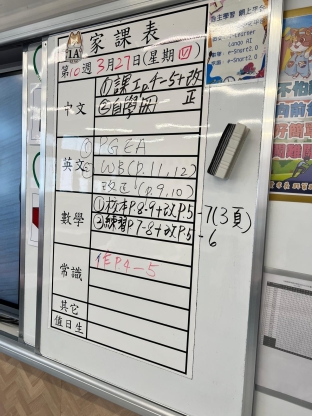 1A 家課表
第10週 3月27日(星期四)
中文 ①課工p.4-5+改正
②自學冊
英文 ① PGEA
② WB(p.11,12)
改正(p.9,10)
數學 ①校本P.8-9+改P.5-7(3頁)
②練習P.7-8+改P.5-6
常識 作P4-5
其它
值日生
自主學習 網上學